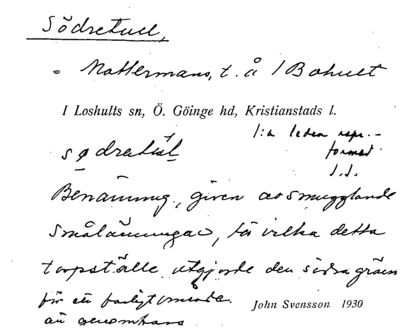 Södretull,
= Nattermans, t. å 1 Bohult
I Loshults sn, Ö. Göinge hd, Kristianstads l.
1:a leden repr.-
sødretul
formed
J.S.
Benämning, given av smugglande
smålänningar, för vilka detta
torpställe utgjorde den södra gränsen
för ett farligt område
John Svensson 1930
att genomfara